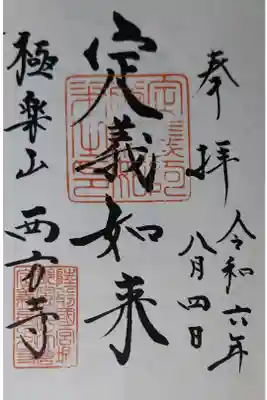 奉拝
令和六年
八月四日
定義如来
極楽山
西方寺